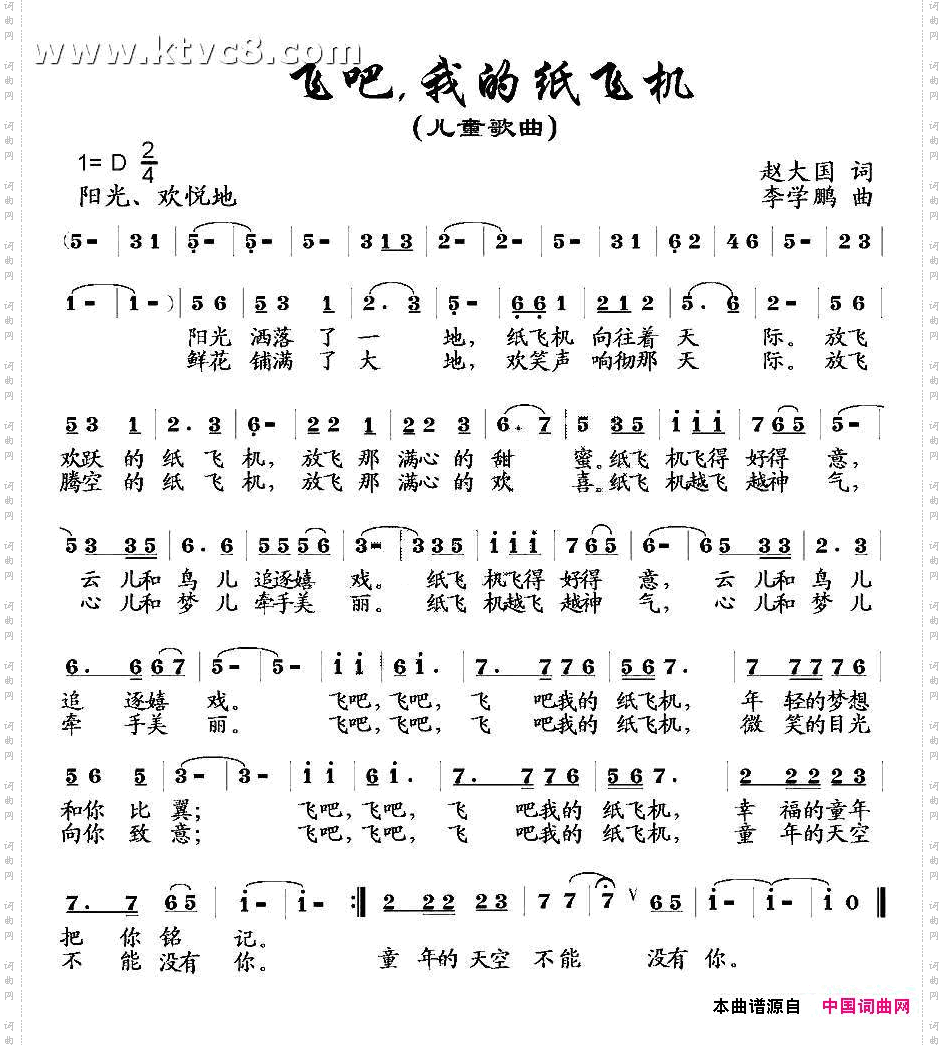 www.ktvc8.com
飞吧,我的纸飞机
(儿童歌曲)
1= D 2/4
赵大国 词
阳光、欢悦地
李学鹏 曲
(5 - | 3 1 | 5 - | 5 - | 5 - | 3 1 3 | 2 - | 2 - | 5 - | 3 1 | 6 2 | 4 6 | 5 - | 2 3 |
1 - | 1 - ) | 5 6 | 5 3 1 | 2 . 3 | 5 - | 6 6 1 | 2 1 2 | 5 . 6 | 2 - | 5 6 |
阳光 洒落 了 一 地, 纸飞机 向往着 天 际。 放飞
鲜花 铺满 了 大 地, 欢笑声 响彻那 天 际。 放飞
5 3 1 | 2 . 3 | 6 - | 2 2 1 | 2 2 3 | 6 . 7 | 5 3 5 | i i i | 7 6 5 | 5 - |
欢跃 的 纸 飞 机, 放飞 那 满心 的 甜 蜜。纸飞 机飞得 好得 意,
腾空 的 纸 飞 机, 放飞 那 满心 的 欢 喜。纸飞 机越飞 越神 气,
5 3 3 5 | 6 . 6 | 5 5 5 6 | 3 - | 3 3 5 | i i i | 7 6 5 | 6 - | 6 5 3 3 | 2 . 3 |
云 儿和 鸟 儿 追逐嬉 戏。 纸飞 机飞得 好得 意, 云 儿和 鸟 儿
心 儿和 梦 儿 牵手美 丽。 纸飞 机越飞 越神 气, 心 儿和 梦 儿
6 . 6 6 7 | 5 - | 5 - | i i | 6 i . | 7 . 7 7 6 | 5 6 7 . | 7 7 7 7 6 |
追 逐嬉 戏。 飞吧,飞吧, 飞 吧我的 纸飞机, 年 轻的梦想
牵 手美 丽。 飞吧,飞吧, 飞 吧我的 纸飞机, 微 笑的目光
5 6 5 | 3 - | 3 - | i i | 6 i . | 7 . 7 7 6 | 5 6 7 . | 2 2 2 2 3 |
和你 比 翼; 飞吧,飞吧, 飞 吧我的 纸飞机, 幸 福的童年
向你 致 意; 飞吧,飞吧, 飞 吧我的 纸飞机, 童 年的天空
7 . 7 6 5 | i - | i - :| 2 2 2 2 3 | 7 7 | 7 V 6 5 | i - | i - | i 0 |
把 你 铭 记。
不 能 没有 你。 童 年的 天空 不能 没有 你。
本曲谱源自 中国词曲网